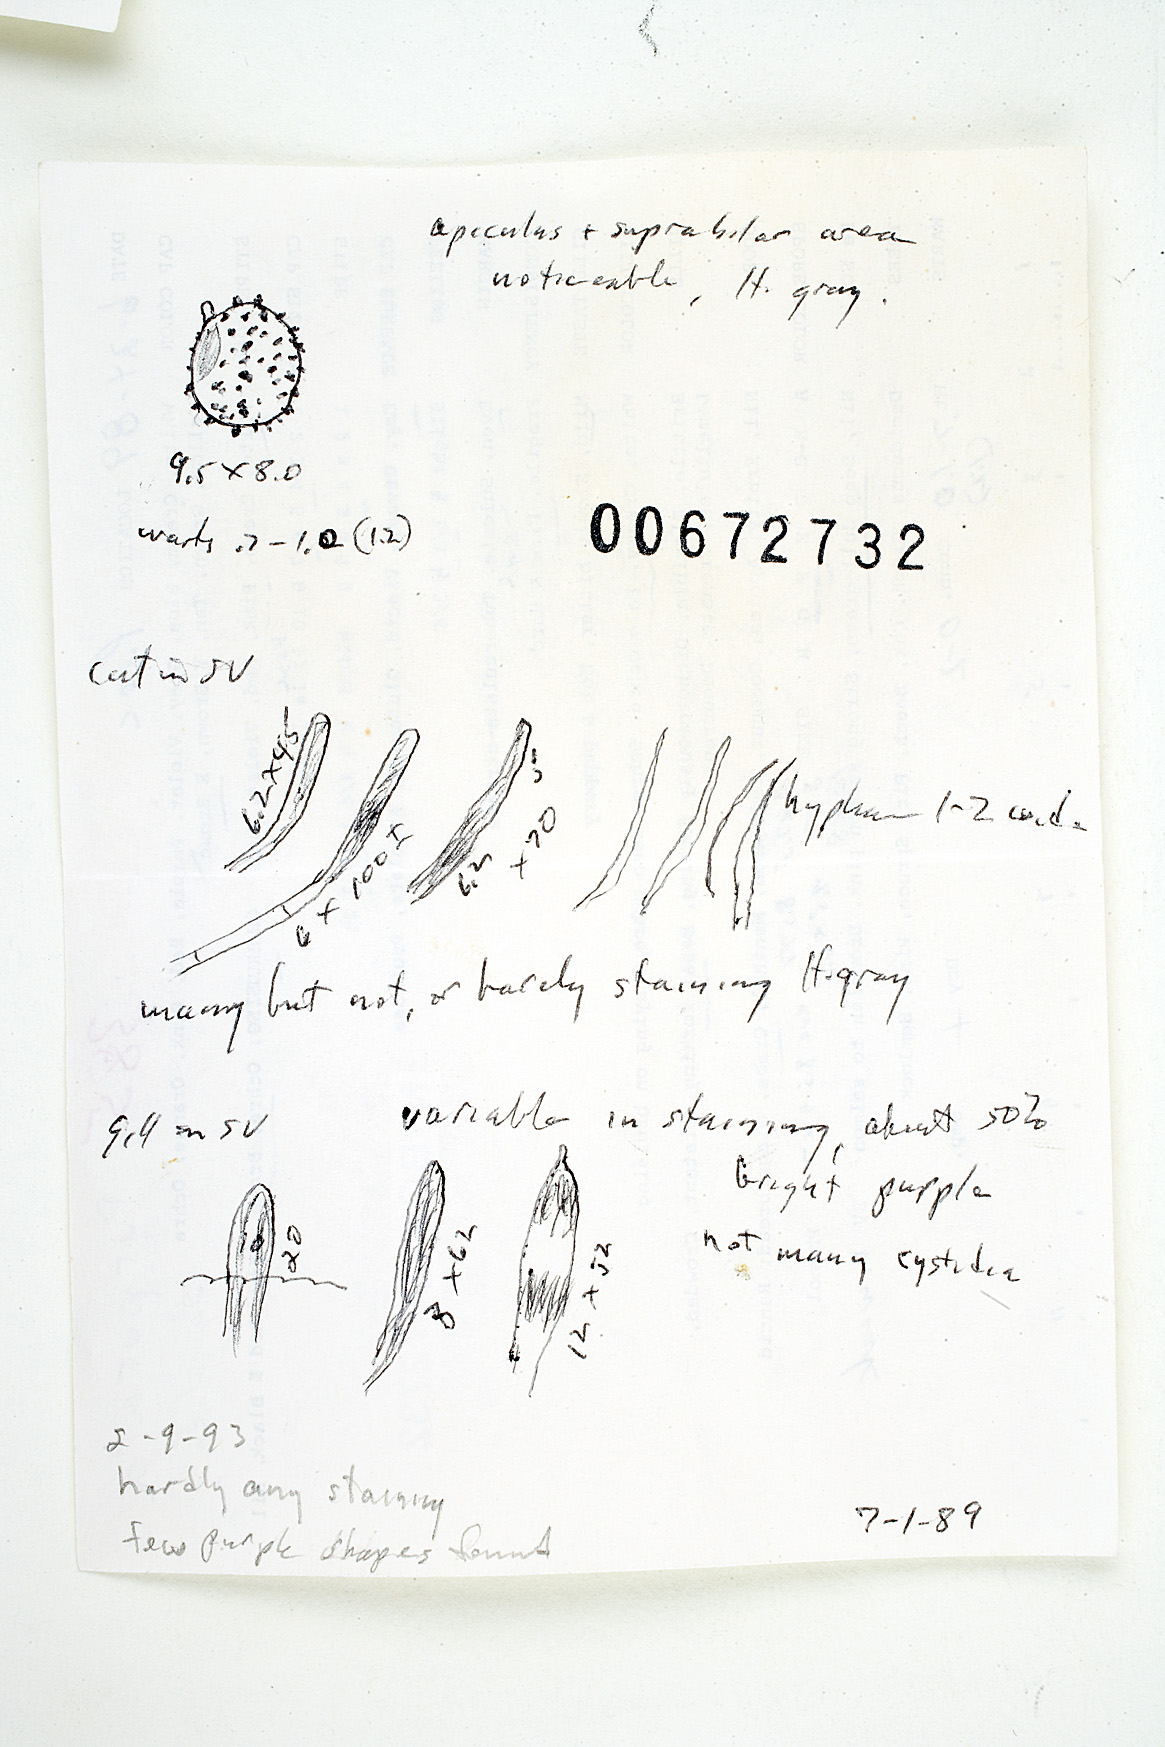 apiculus + suprahilar area
noticeable, lt. gray.
9.5 x 8.0
warts .7-1.0 (1.2)
00672732
Cut in SV
6.2 x 45
6 x 100±
6.2
5
x 70
hyphae 1-2 wide
many but not, or barely staining lt. gray
gill in SV
variable in staining, about 50%
bright purple
not many cystidia
x 20
8 x 62
12 x 52
2-9-93
hardly any staining
few purple shapes found
7-1-89